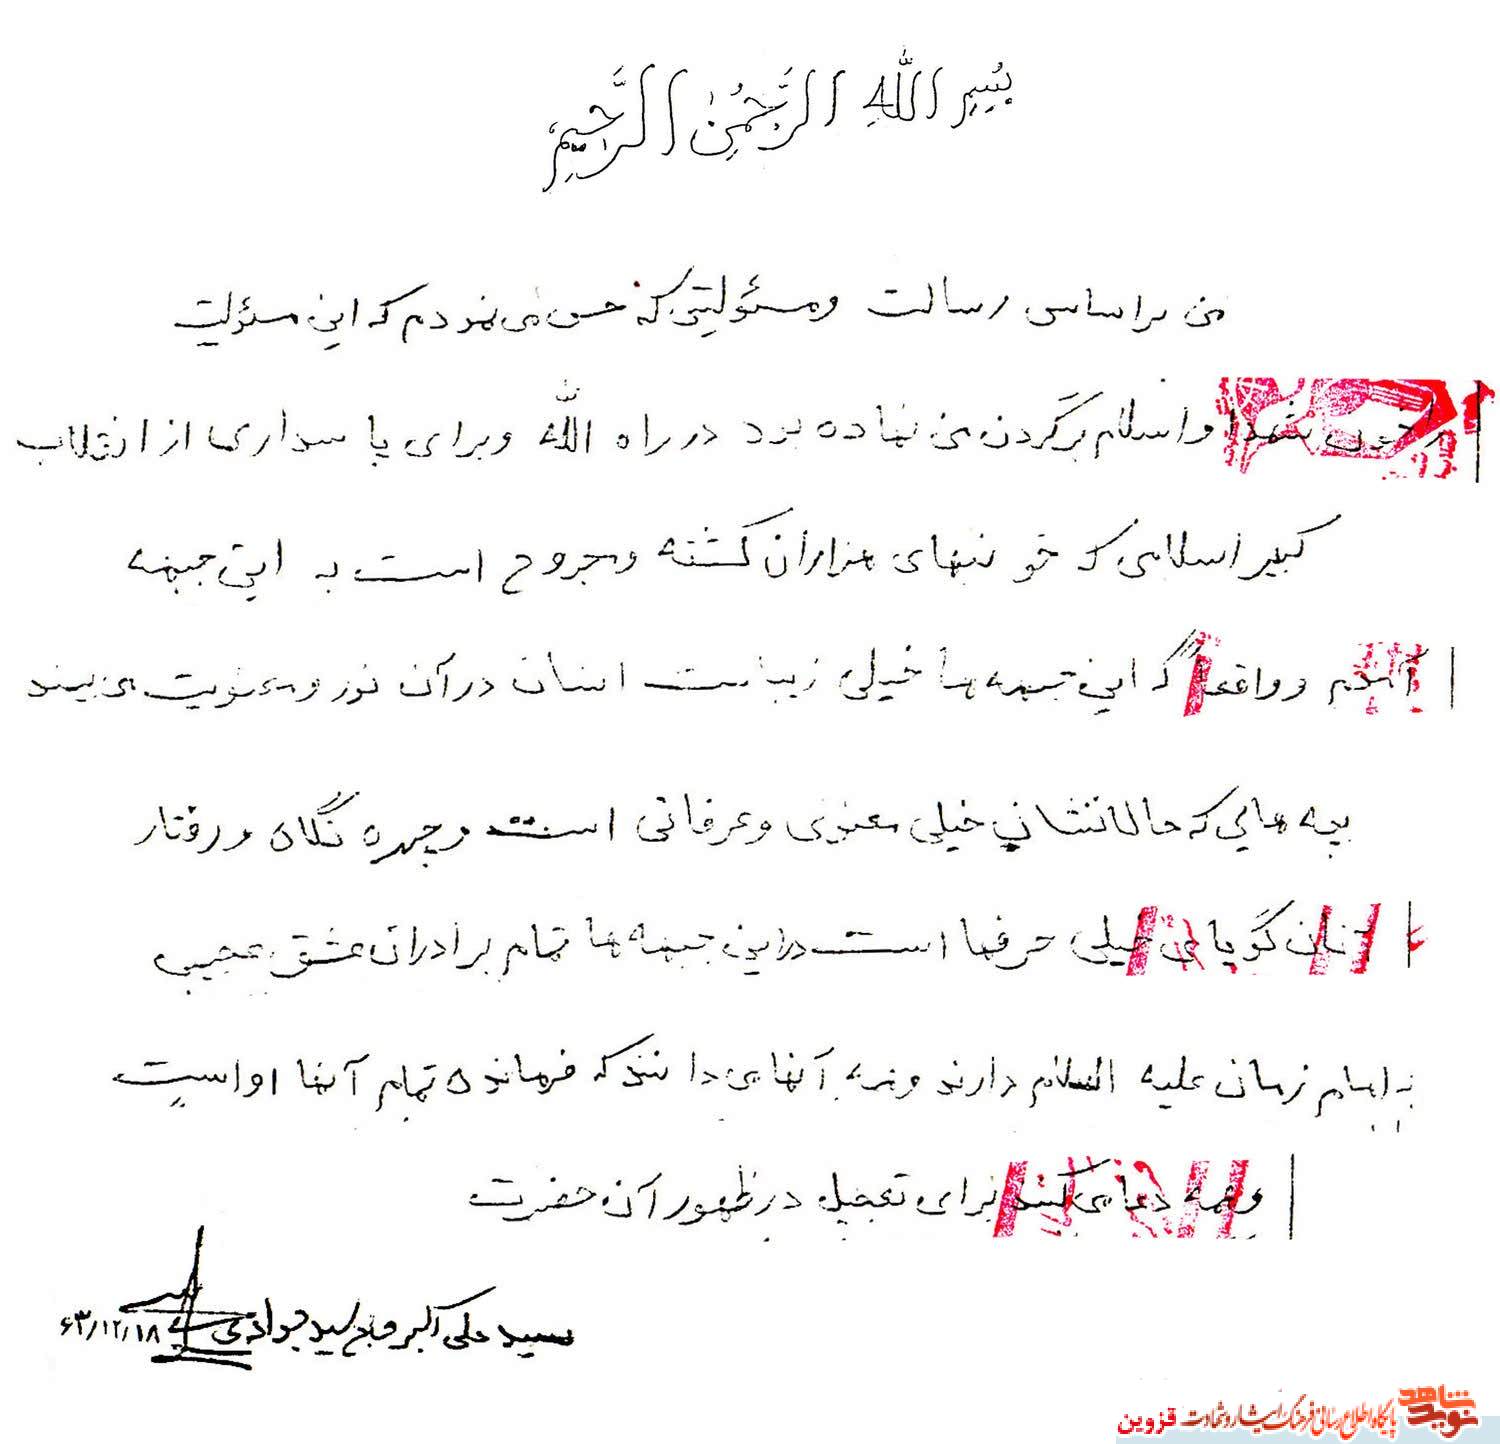 بسم الله الرحمن الرحیم
من براساس رسالت ومسئولیتی که حس می نمودم که این مسئولیت
را خون شهدا واسلام برگردن من نهاده بود در راه الله وبرای پاسداری از انقلاب
کبیر اسلامی که خونبهای هزاران کشته ومجروح است به این جبهه
آمدم و واقعاً که این جبهه ها خیلی زیباست انسان در آن نور ومعنویت می بیند
بچه هایی که حالاتشان خیلی معنوی وعرفانی است و چهره نگاه ورفتار
آنان گویای خیلی حرفها است در این جبهه ها تمام برادران عشق عجیبی
به امام زمان علیه السلام دارند وهمه آنها می دانند که فرمانده تمام آنها اواست
وهمه دعا می کنند برای تعجیل در ظهور آن حضرت
سید علی اکبر حاج سید جوادی
۶۳/۱۲/۱۸
نوید شاهد
پایگاه اطلاع رسانی فرهنگ ایثار و شهادت قزوین